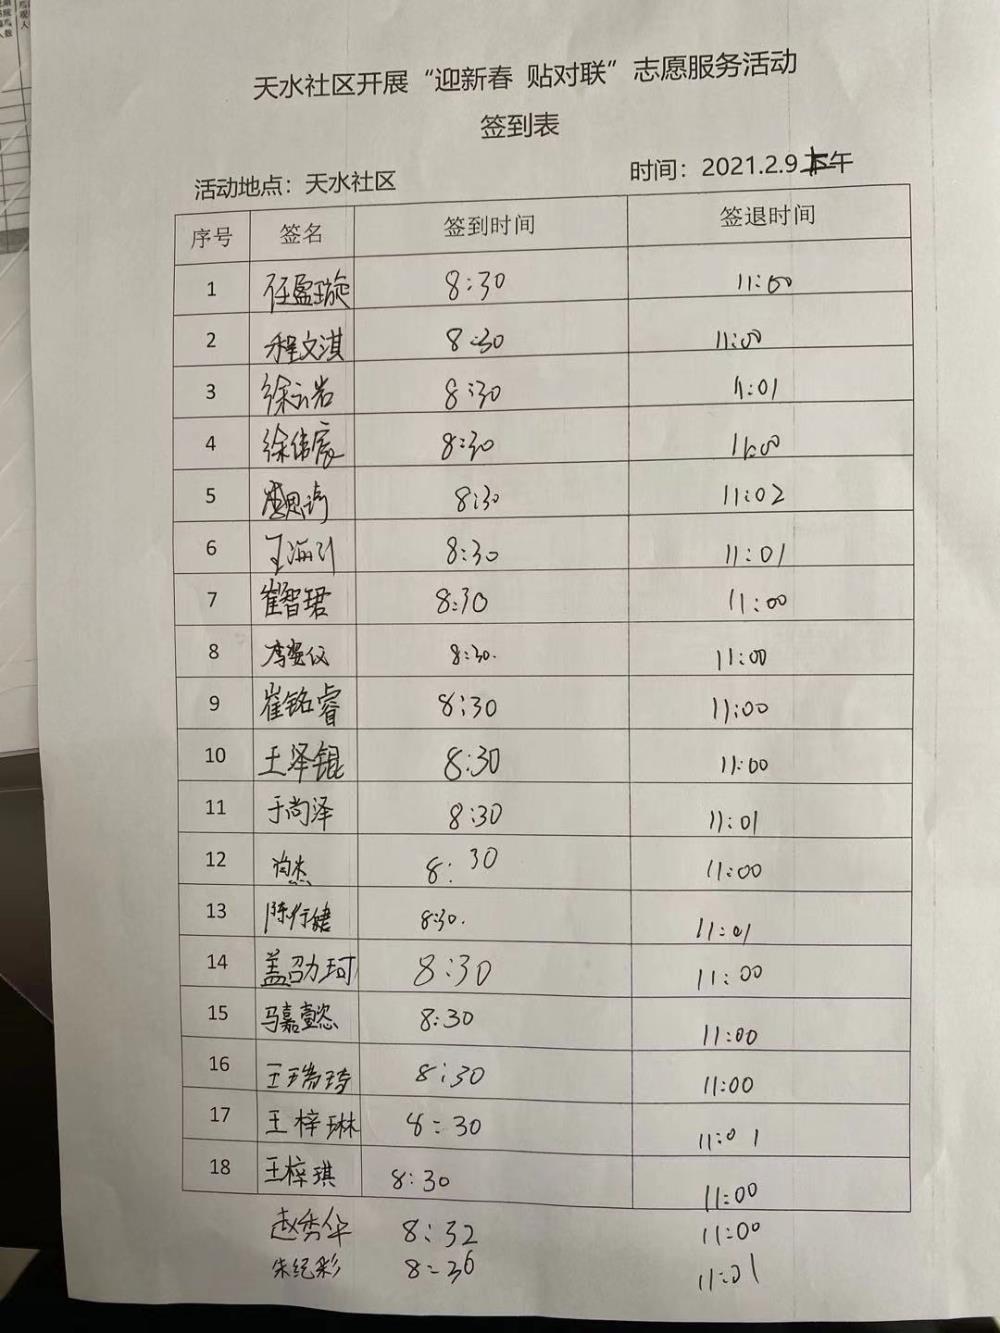 天水社区开展“迎新春 贴对联”志愿服务活动
签到表
活动地点：天水社区 时间：2021.2.9上午
序号 签名 签到时间 签退时间
1 任盈璇 8:30 11:00
2 程文淇 8:30 11:00
3 徐云岩 8:30 11:01
4 徐伟宸 8:30 11:00
5 8:30 11:02
6 8:30 11:01
7 崔智珺 8:30 11:00
8 8:30. 11:00
9 崔铭睿 8:30 11:00
10 王泽锟 8:30 11:00
11 于尚泽 8:30 11:01
12 8:30 11:00
13 陈行健 8:30. 11:01
14 盖邵力珂 8:30 11:00
15 马嘉懿 8:30 11:00
16 王瑞琦 8:30 11:00
17 王梓琳 8:30 11:01
18 王梓琪 8:30 11:00
赵秀华 8:32 11:00
朱纪彩 8:36 11:01